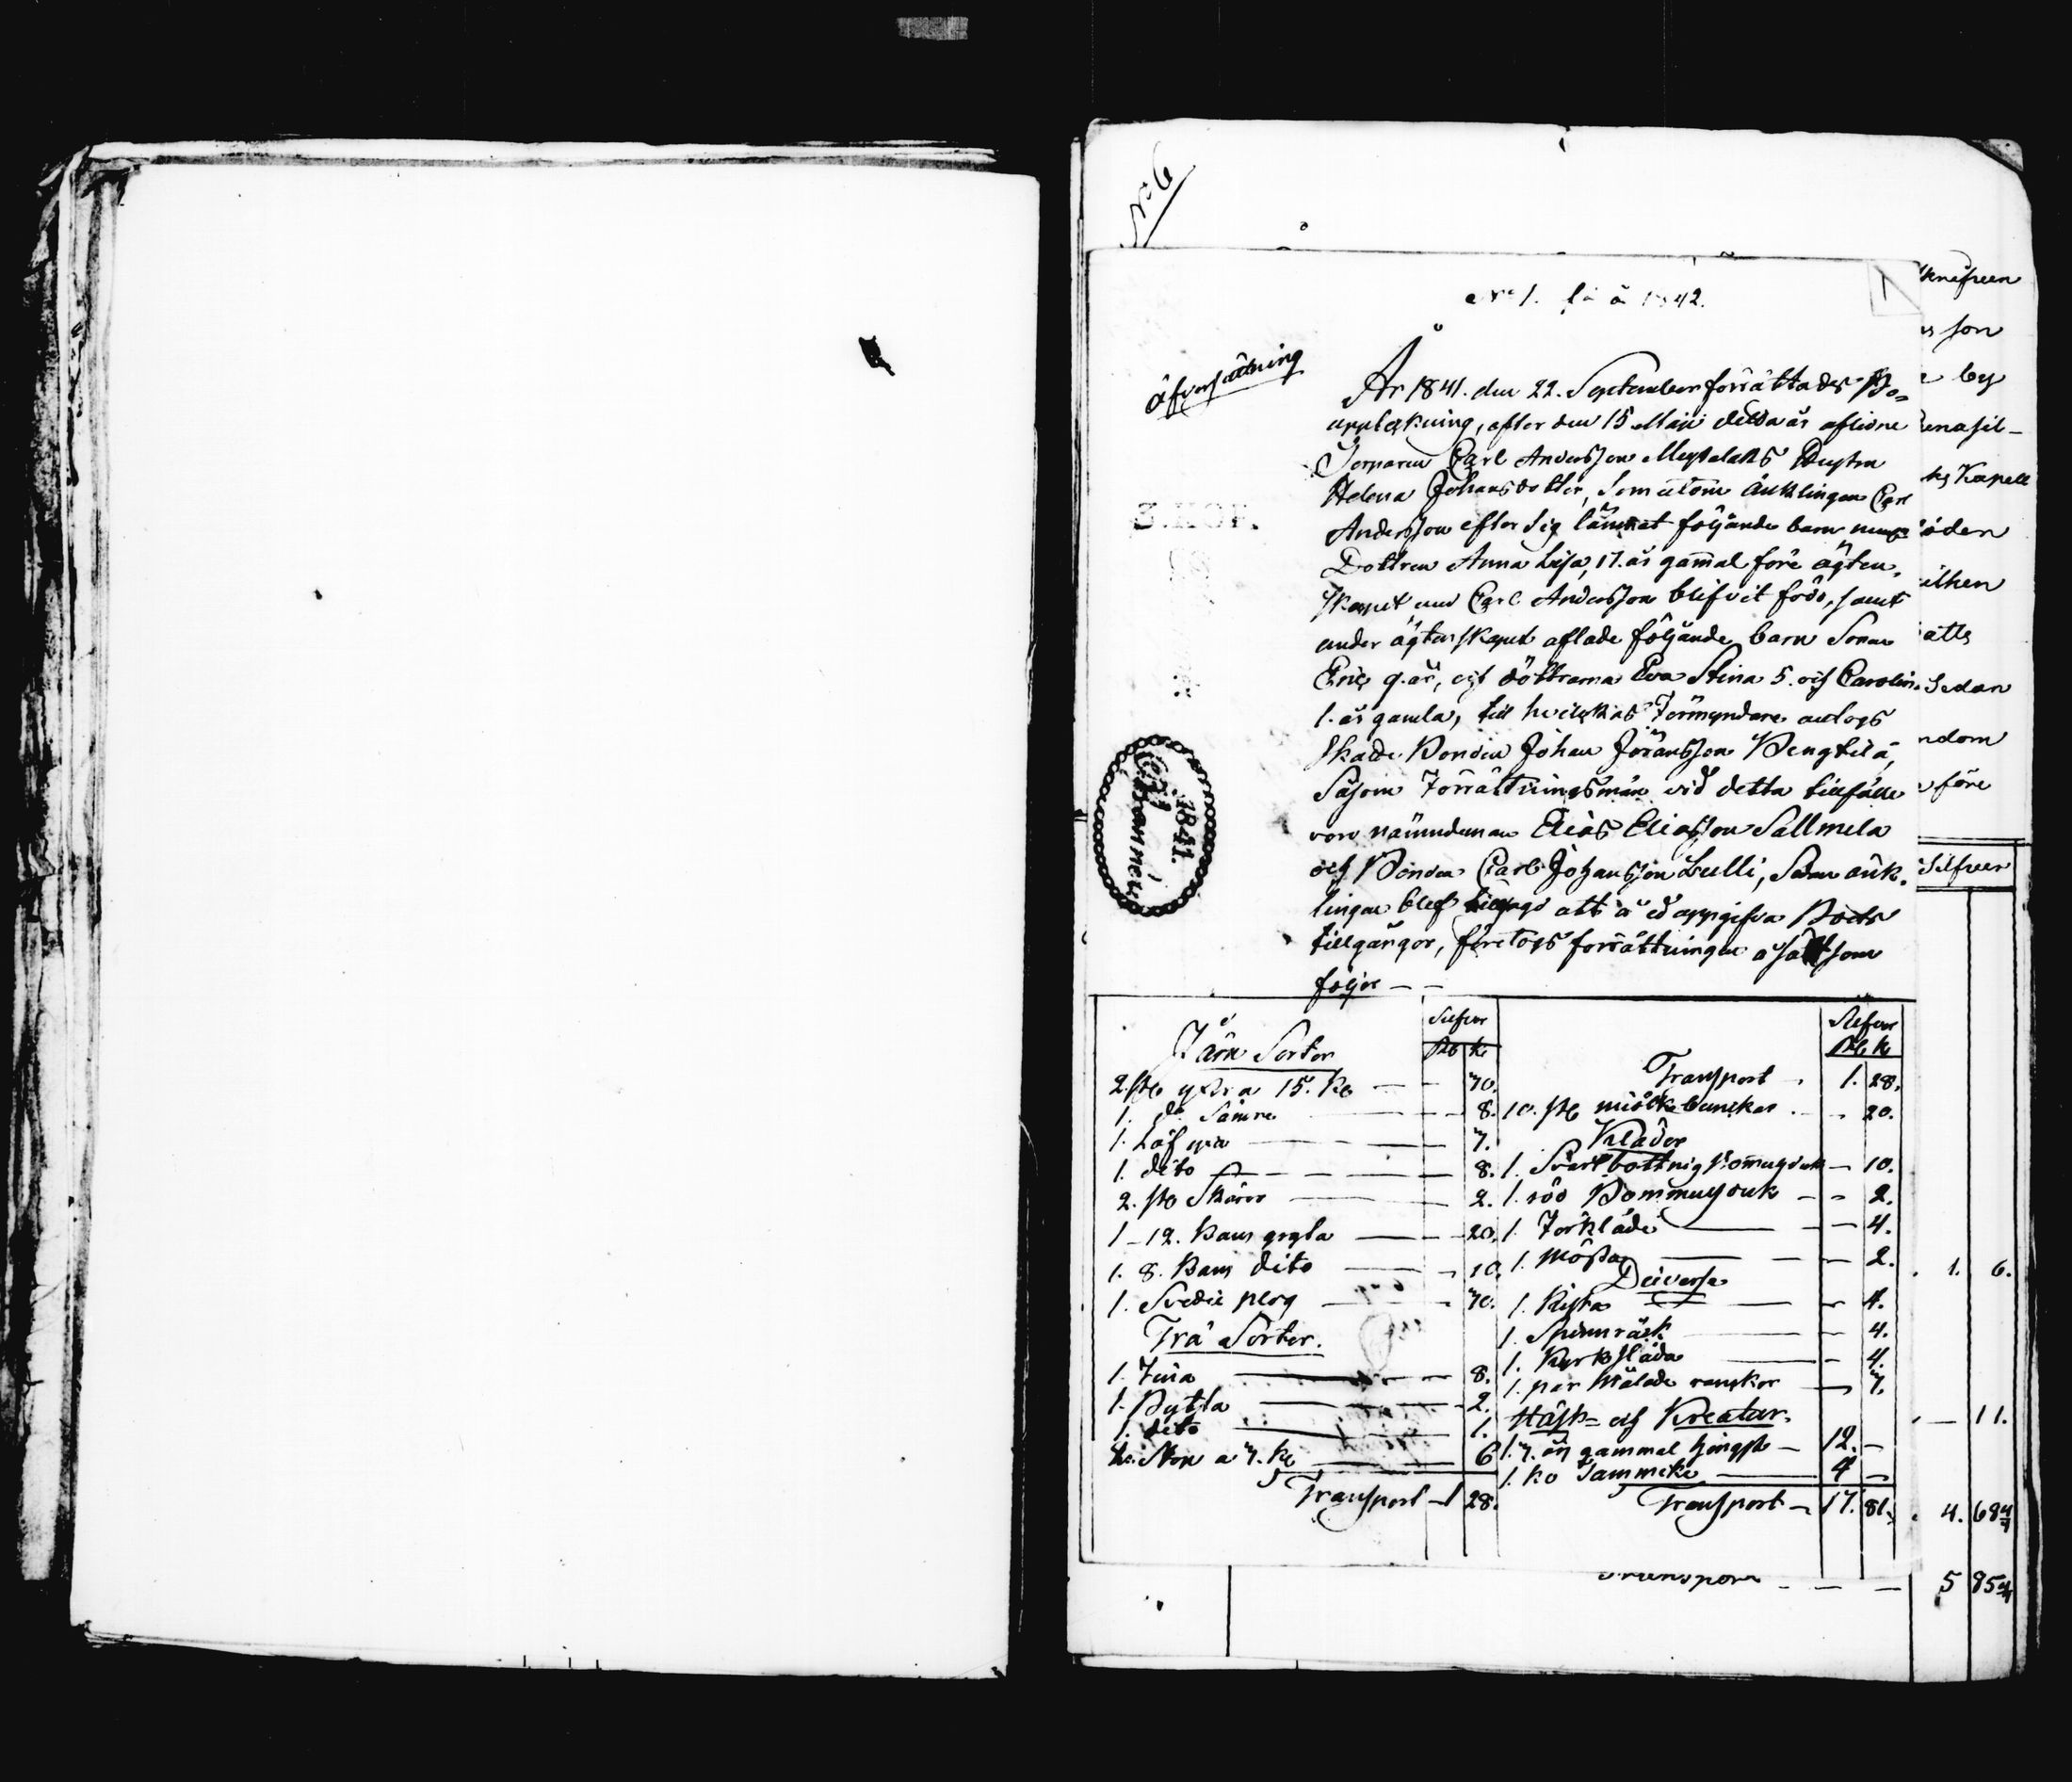 N:o 6
N:o 1. fö å 1842.
Åfverfattning
År 1841. den 22. September förrättades Bo-
uppteckning, efter den 15 Maji detta år aflidne
Torparen Carl Andersson Meyxelaks Hustru
Helena Johansdotter, som utom änklingen Carl
Andersson efter sig lämnat följande barn
Dottren Anna Lisa, 17. år gammal före ägten-
skapet med Carl Andersson blifvit född, samt
under ägtenskapet aflade följande barn Sonen
Eric 9. år, och döttrarna Eva Stina 5. och Carolina
1. år gamla, till hvilkas Förmyndare antogs
Bonden Johan Jöransson Bengtilä,
Såsom Förrättningsmän vid detta tillfälle
voro nämndeman Elias Eliasson Sallmela
och Bonden Carl Johansson Lulli, Sedan änk-
lingen blef tillsagd att å ed uppgifva Boets
tillgångar, företogs förrättningen å sätt som
följer — —
S.HOF.
1841.
Silfver
Rb K
Järn Sorter
2. st yxor a 15. K — — 30.
1. d:o Sämre — — 8.
1. Löf yxa — — 7.
1. dito — — 8.
2. st Skäror — — 2.
1 - 12. Kans gryta — — 20.
1. 8. Kans dito — — 10.
1. Svedie plog — — 30.
Trä Sorter.
1. Tina — — 8.
1. Bytta — — 2.
1. dito — — 1.
a 3. K — — 6
Transport — 1 28.
Silfver
Rb K
Transport — 1. 28.
10. st miölkbunckar — — 20.
Kläder
1. Svartbottnig Bommugsduk — 10.
1. röd Bommugsduk — — 2.
1. Förkläde — — 4.
1. Mössa — — 2.
Diverse
1. Kista — — 4.
1. Spinnråck — — 4.
1. Kyrkslåda — — 4.
1. par Målade ranckor — 3.
Häst- och Kreatur.
1. 7. år gammal hingst — 12. —
1. ko Tammike — 4 —
Transport — 17. 81.
son
by
Kapell
öden
ilken
atts
Sedan
ndom
före
Silfver
1. 6.
— 11.
4. 68 4/7
Transport — — — 5 85 4/7